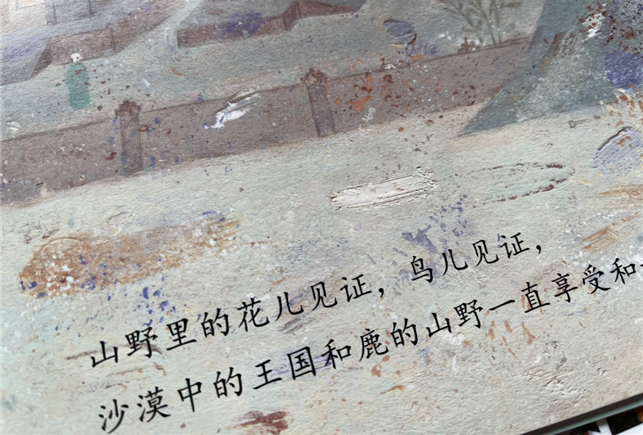 山野里的花儿见证，鸟儿见证，
沙漠中的王国和鹿的山野一直享受和